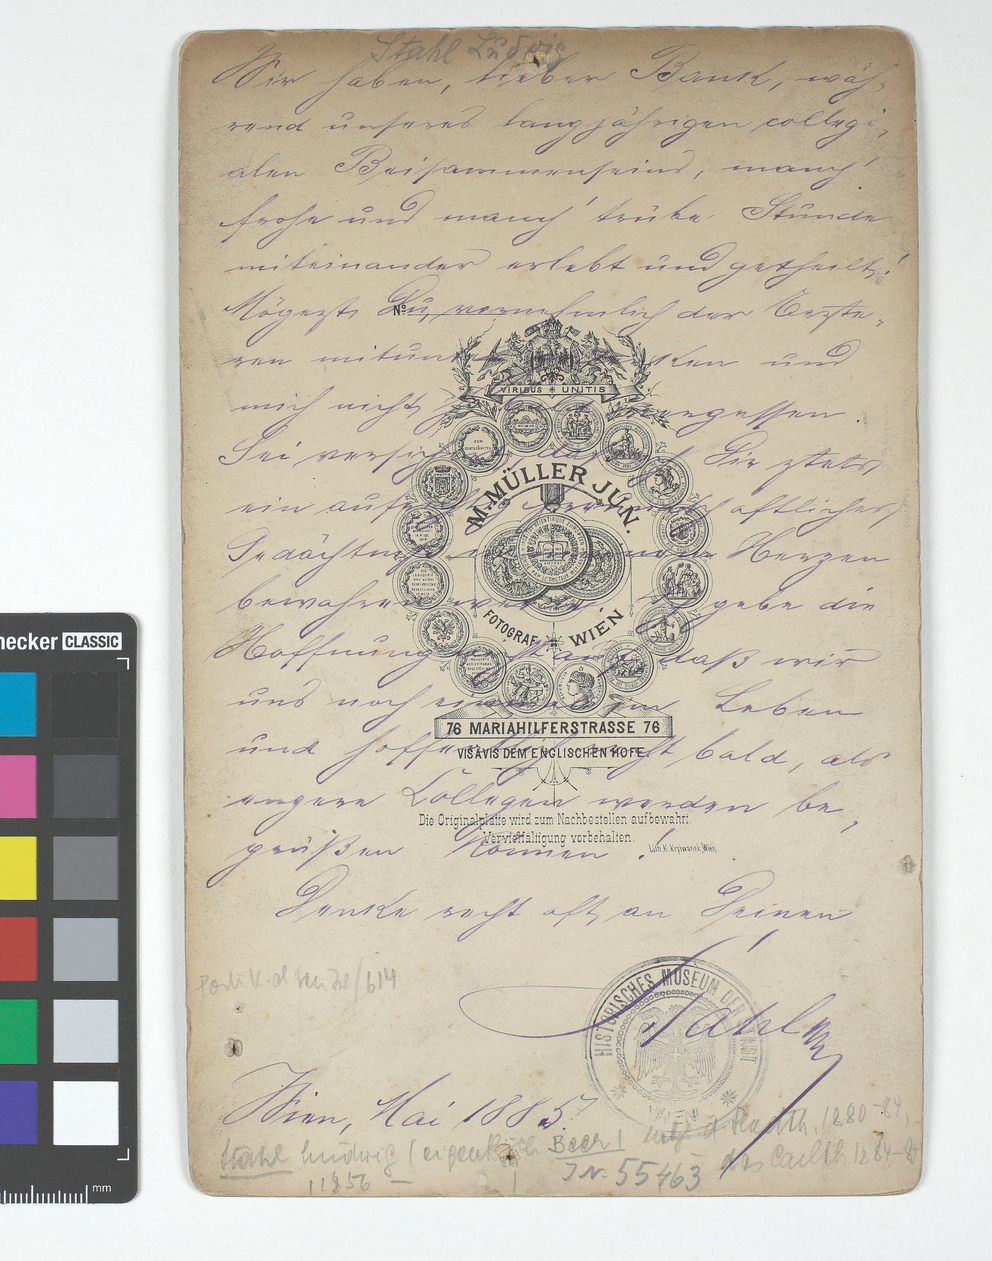 Stahl Ludwig
Wir haben, lieber Bank, wäh-
rend unseres langjährigen collegi-
alen Beisammenseins, manch'
frohe und manch' trübe Stunde
miteinander erlebt und getheilt!
Mögest Du vornehmlich der Erste-
ren mitunter denken und
mich nicht ganz vergessen.
Sei versichert, daß ich Dir stets
ein aufrichtig freundschaftliches
Gedächtniß in meinem Herzen
bewahren werde. Ich gebe die
Hoffnung nicht auf, daß wir
uns noch einmal im Leben
und hoffentlich recht bald, als
engere Collegen werden be-
grüßen können!
Denke recht oft an Deinen
Stahl
Wien, Mai 1885.
No
VIRIBUS UNITIS
M. MÜLLER JUN.
FOTOGRAF WIEN
76 MARIAHILFERSTRASSE 76
VIS À VIS DEM ENGLISCHEN HOFE.
Die Originalplatte wird zum Nachbestellen aufbewahrt.
Vervielfältigung vorbehalten.
Lith. K. Krziwanek, Wien
/614
HISTORISCHES MUSEUM DER STADT WIEN
Stahl Ludwig (eigentlich Beer)
1880-84,
1884-
11856
J.N. 55463
necker CLASSIC
mm